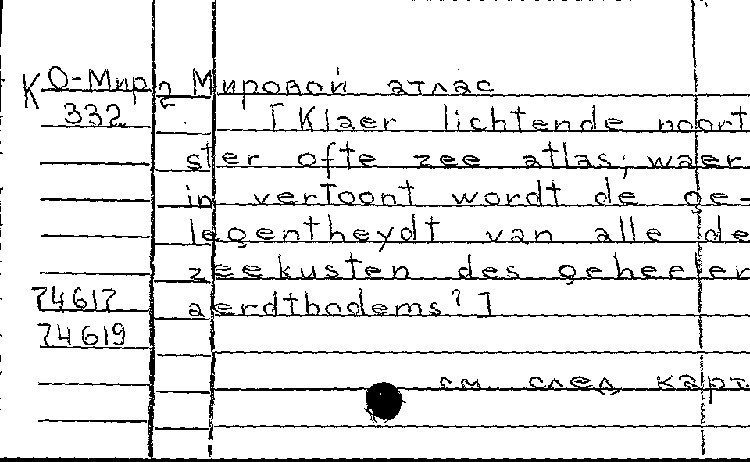 К О-Мир 2 Мировой атлас
332 [Klaer lichtende noort
ster ofte zee atlas; waer
in vertoont wordt de ge-
legentheydt van alle de
zeekusten des geheeler
74617 aerdtbodems?]
74619
см. след. карт